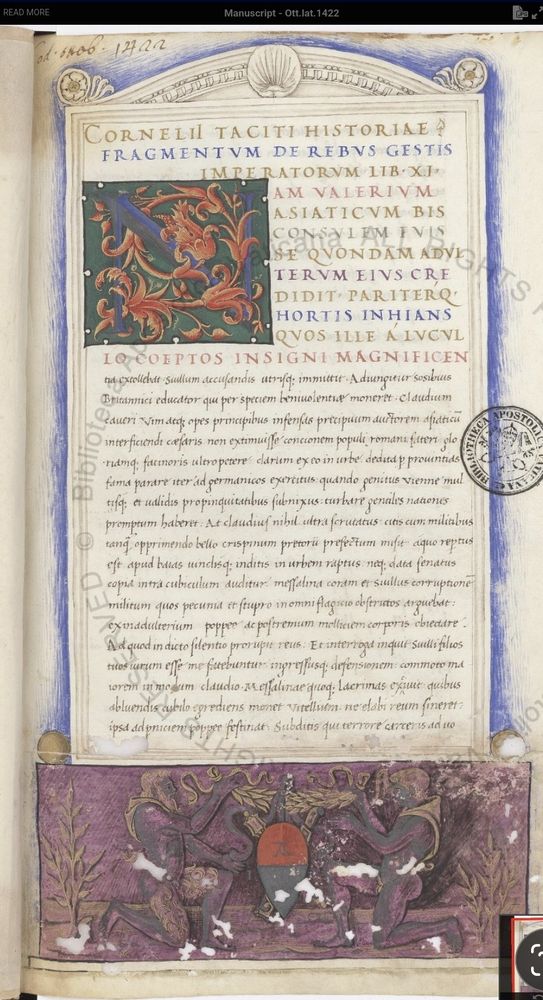 READ MORE
Manuscript - Ott.lat.1422
1422
CORNELII TACITI HISTORIAE
FRAGMENTVM DE REBVS GESTIS
IMPERATORVM LIB·XI·
NAM VALERIVM
ASIATICVM BIS
CONSVLEM FVIS
SE QVONDAM ADVL
TERVM EIVS CRE
DIDIT· PARITERQ·
HORTIS INHIANS
QVOS ILLE Á LVCVL
LO COEPTOS INSIGNI MAGNIFICEN
tia extollebat suillum accusandis utrisq; immittit. Adiungitur sosibius
Britannici educator qui per speciem benivolentiae moneret. Claudium
caveri Vim atq; opes principibus infensas precipuum auctorem asiaticū
interficiendi caesaris non extimuisse concionem populi romani fateri. glo
riamq; facinoris ultro petere. clarum ex eo in urbe. dedita p provintias
fama parare iter ad germanicos exercitus. quando genitus vienne mul
tisq; et validis propinquitatibus subnixus. turbare gentiles nationes
promptum haberet. At claudius nihil ultra scrutatus. citis cum militibus
tanq̃ opprimendo bello crispinum pretorii prefectum misit. a quo reptus
est apud baias vinclisq; inditis in urbem raptus. neq; data senatus
copia intra cubiculum auditur. messalina coram et suillus corruptionē
militum quos pecunia et stupro in omni flagitio obstrictos arguebat.
exin adulterium poppee ac postremum molliciem corporis obiectare.
Ad quod in dicto silentio prorupit reus. Et interroga inquit Suilli filios
tuos virum esse me fatebuntur. ingressusq; defensionem. commoto ma
iorem in modum claudio. Messalinae quoq; lacrimas exivit. quibus
obluendis cubilo egrediens monet Vitellium. ne elabi reum sineret.
ipsa ad pniciem poppee festinat. Subditis qui terrore carceris ad vo
BIBLIOTHECA APOSTOLICA VATICANA
© Biblioteca Apostolica Vaticana ALL RIGHTS RESERVED